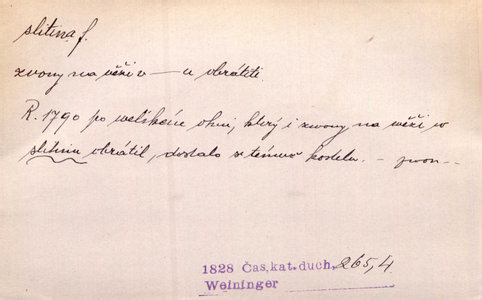 slitina f.
zvony na věži v — u obrátiti.
R. 1790 po velikém ohni, který i zvony na věži v
slitinu obrátil, dostalo se témuž kostelu. –
1828 Čas. kat. duch. 265,4
Weininger